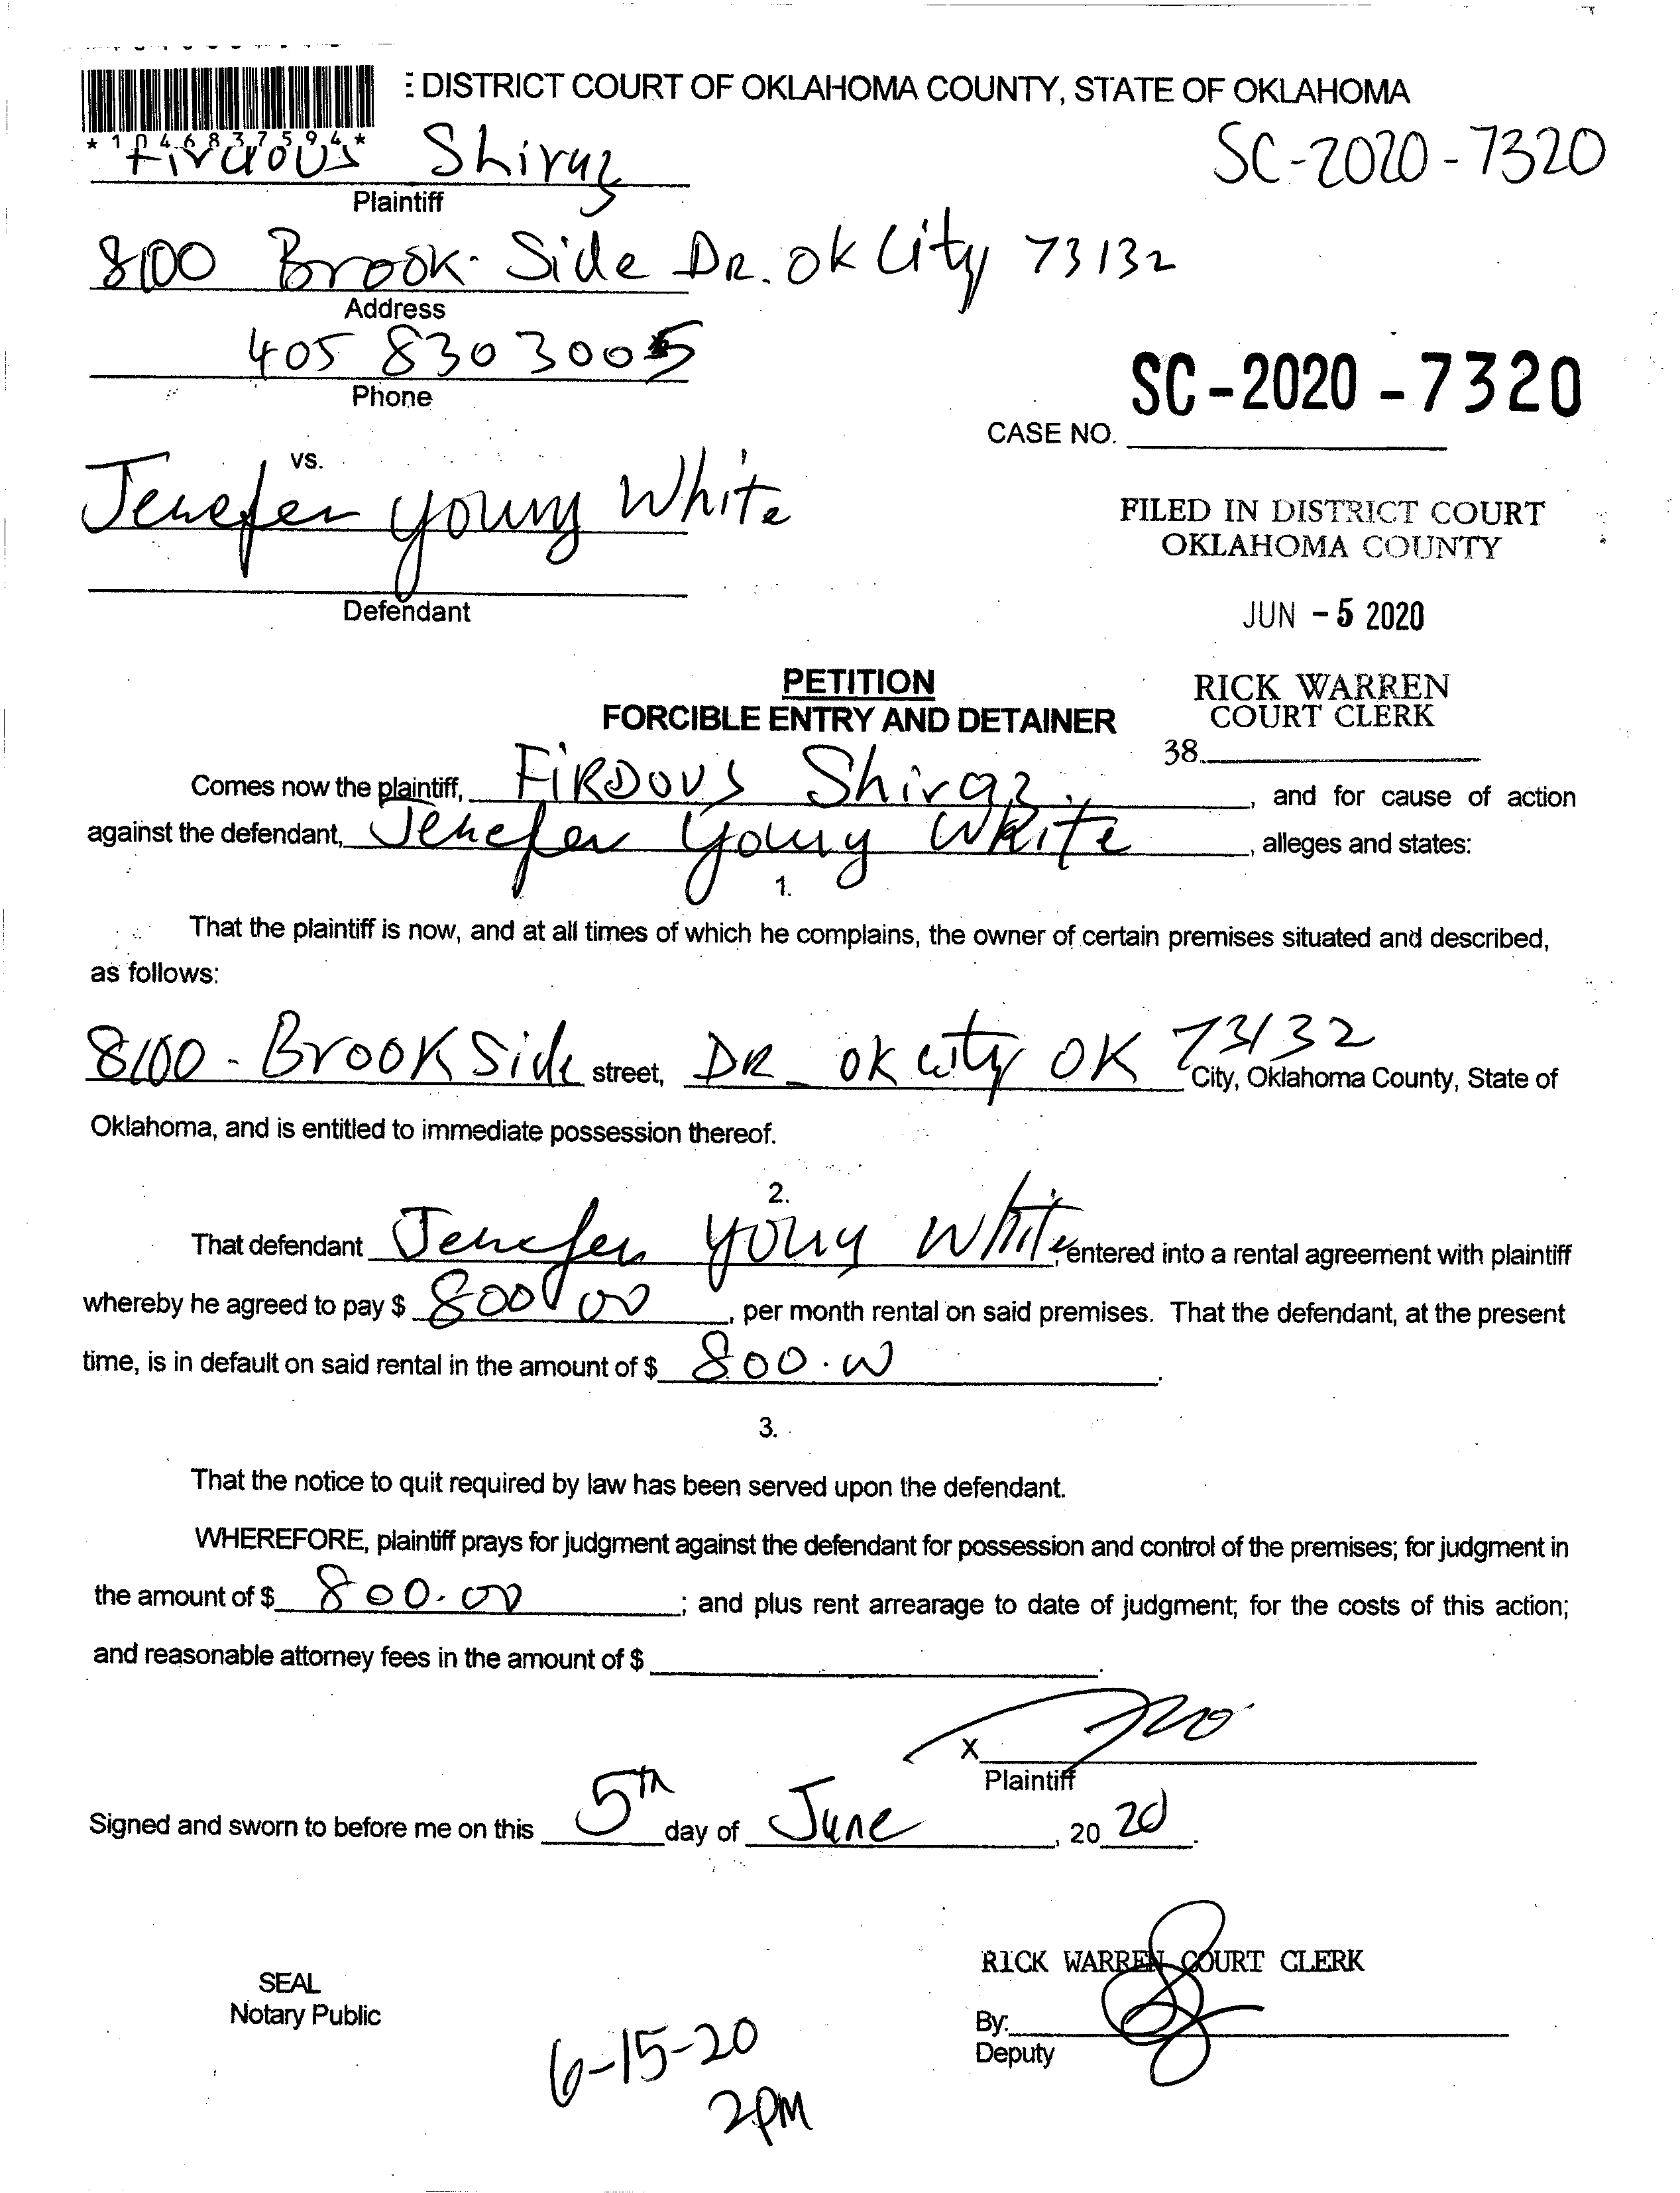 : DISTRICT COURT OF OKLAHOMA COUNTY, STATE OF OKLAHOMA
*1046837594*
Firdous Shiraz
SC-2020-7320
Plaintiff
8100 Brook-Side DR. ok City 73132
Address
405 830 3005
Phone
SC-2020-7320
CASE NO.
vs.
Jenefer young White
FILED IN DISTRICT COURT
OKLAHOMA COUNTY
Defendant
JUN -5 2020
PETITION
RICK WARREN
FORCIBLE ENTRY AND DETAINER
COURT CLERK
38
Comes now the plaintiff, FIRDOUS Shiraz, and for cause of action
against the defendant, Jenefer young White, alleges and states:
1.
That the plaintiff is now, and at all times of which he complains, the owner of certain premises situated and described,
as follows:
8100 - Brook Side street, DR - ok city OK 73132 City, Oklahoma County, State of
Oklahoma, and is entitled to immediate possession thereof.
2.
That defendant Jenefer young White, entered into a rental agreement with plaintiff
whereby he agreed to pay $ 800.00, per month rental on said premises. That the defendant, at the present
time, is in default on said rental in the amount of $ 800.00.
3.
That the notice to quit required by law has been served upon the defendant.
WHEREFORE, plaintiff prays for judgment against the defendant for possession and control of the premises; for judgment in
the amount of $ 800.00; and plus rent arrearage to date of judgment; for the costs of this action;
and reasonable attorney fees in the amount of $ .
X
Plaintiff
Signed and sworn to before me on this 5th day of June, 2020.
RICK WARREN COURT CLERK
SEAL
Notary Public
By:
Deputy
6-15-20
2PM